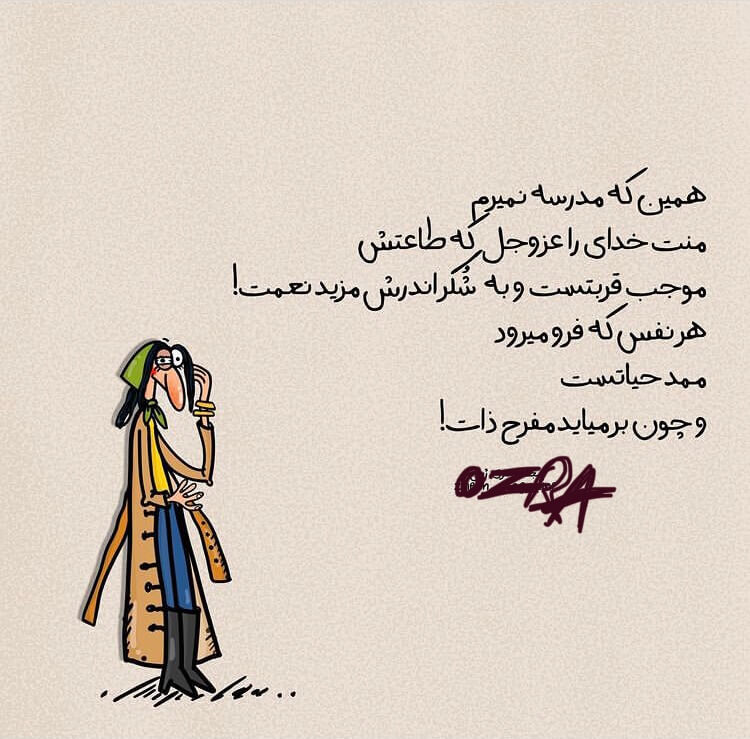 همین که مدرسه نمیرم
منت خدای را عزوجل که طاعتش
موجب قربتست و به شُکر اندرش مزید نعمت!
هر نفس که فرو میرود
ممد حیاتست
و چون برمیاید مفرح ذات!
OZRA